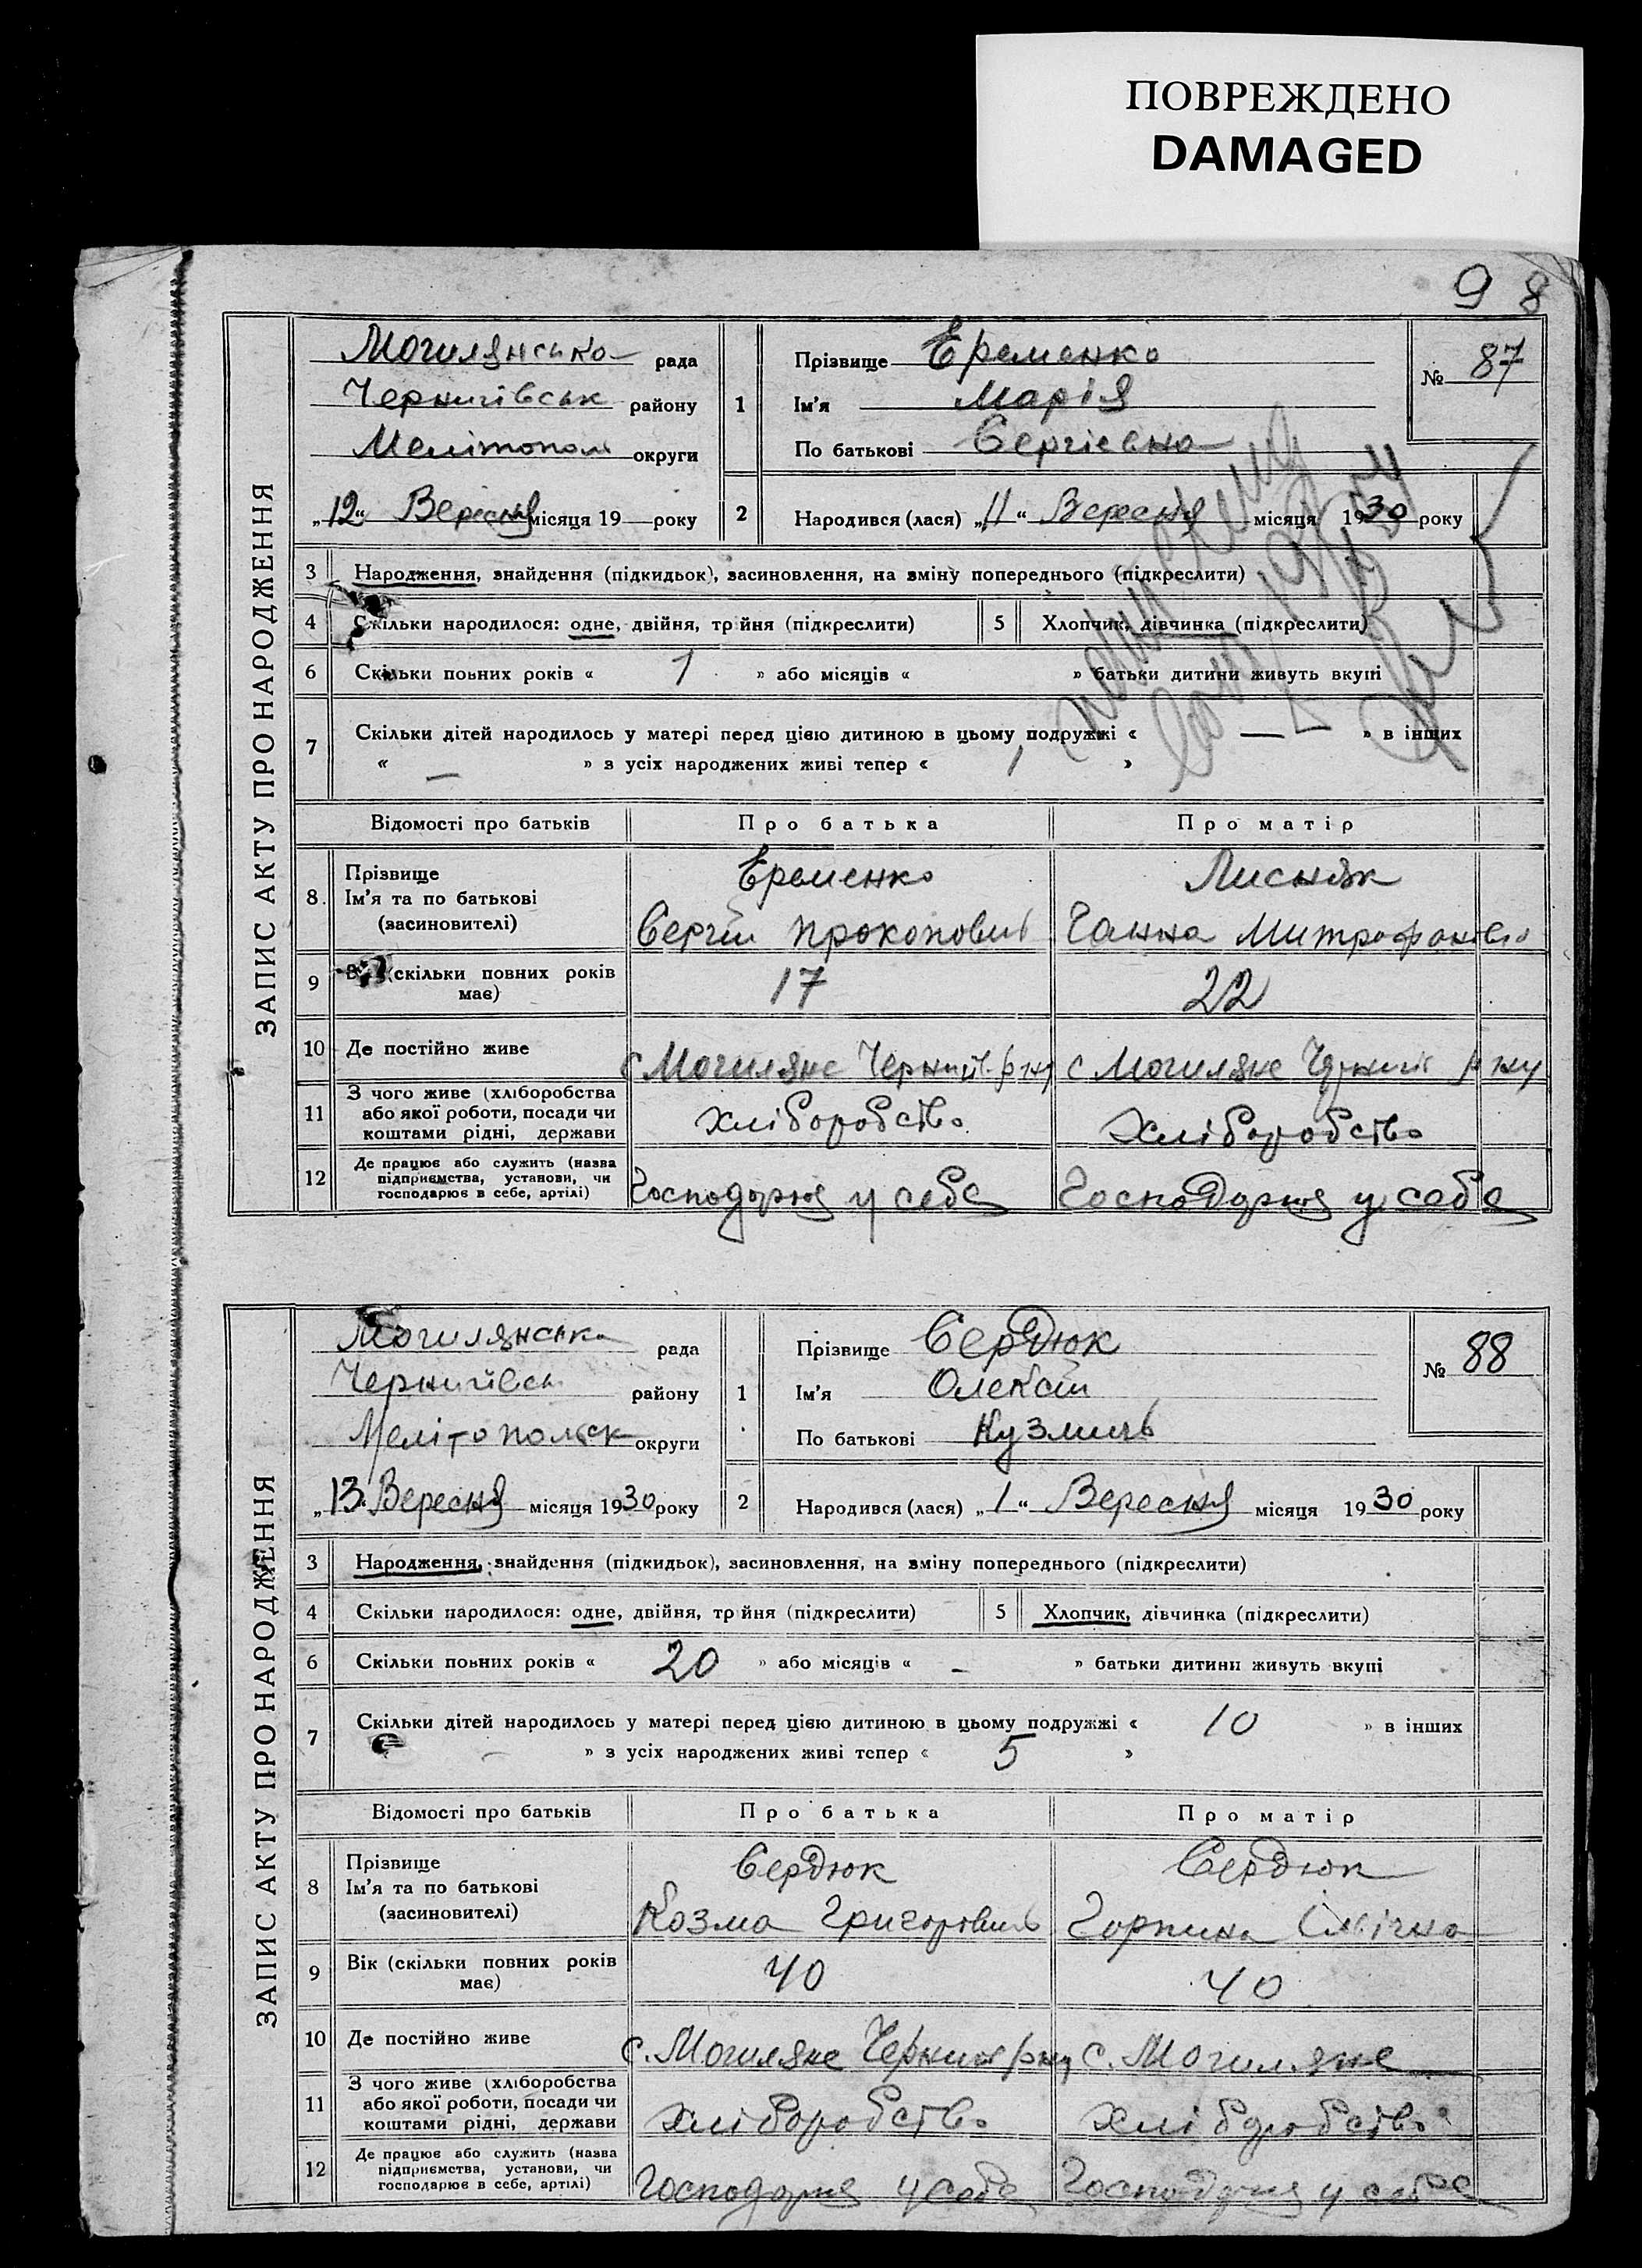 ПОВРЕЖДЕНО
DAMAGED
98
ЗАПИС АКТУ ПРО НАРОДЖЕННЯ
Могилянсько рада
Чернигівськ району
Мелітопол округи
„12“ Вересня місяця 19 року
1
Прізвище Єременко
Ім'я Марія
По батькові Сергіевна
№ 87
2
Народився (лася) „11“ Вересня місяця 1930 року
3 Народження, знайдення (підкидьок), засиновлення, на зміну попереднього (підкреслити)
4 Скільки народилося: одне, двійня, трійня (підкреслити)
5 Хлопчик, дівчинка (підкреслити)
6 Скільки повних років « 1 » або місяців « » батьки дитини живуть вкупі
7 Скільки дітей народилось у матері перед цією дитиною в цьому подружжі « — » в інших
« — » з усіх народжених живі тепер « 1 »
Відомості про батьків Про батька Про матір
8. Прізвище
Ім'я та по батькові
(засиновителі)
Єременко
Сергій Прокопович
Лисняк
Ганна Митрофановна
9 (скільки повних років
має)
17 22
10 Де постійно живе
с Могиляне Черниг. р-ну с Могиляне Черниг р-ну
11 З чого живе (хліборобства
або якої роботи, посади чи
коштами рідні, держави
Хліборобство Хліборобство
12 Де працює або служить (назва
підприємства, установи, чи
господарює в себе, артілі)
Господорюя у себе Господорюя у себе
ЗАПИС АКТУ ПРО НАРОДЖЕННЯ
Могилянська рада
Чернигівськ району
Мелітопольск округи
„13“ Вересня місяця 1930 року
1
Прізвище Сердюк
Ім'я Олексій
По батькові Кузмичь
№ 88
2
Народився (лася) „1“ Вересня місяця 1930 року
3 Народження, знайдення (підкидьок), засиновлення, на зміну попереднього (підкреслити)
4 Скільки народилося: одне, двійня, трійня (підкреслити)
5 Хлопчик, дівчинка (підкреслити)
6 Скільки повних років « 20 » або місяців « - » батьки дитини живуть вкупі
7 Скільки дітей народилось у матері перед цією дитиною в цьому подружжі « 10 » в інших
— » з усіх народжених живі тепер « 5 »
Відомості про батьків Про батька Про матір
8 Прізвище
Ім'я та по батькові
(засиновителі)
Сердюк
Козма Григорович
Сердюк
Горпина
9 Вік (скільки повних років
має)
40 40
10 Де постійно живе
с. Могиляне Черниг р-ну с. Могиляне
11 З чого живе (хліборобства
або якої роботи, посади чи
коштами рідні, держави
Хліборобство Хліборобство
12 Де працює або служить (назва
підприємства, установи, чи
господарює в себе, артілі)
Господорюя у себе Господорюя у себе